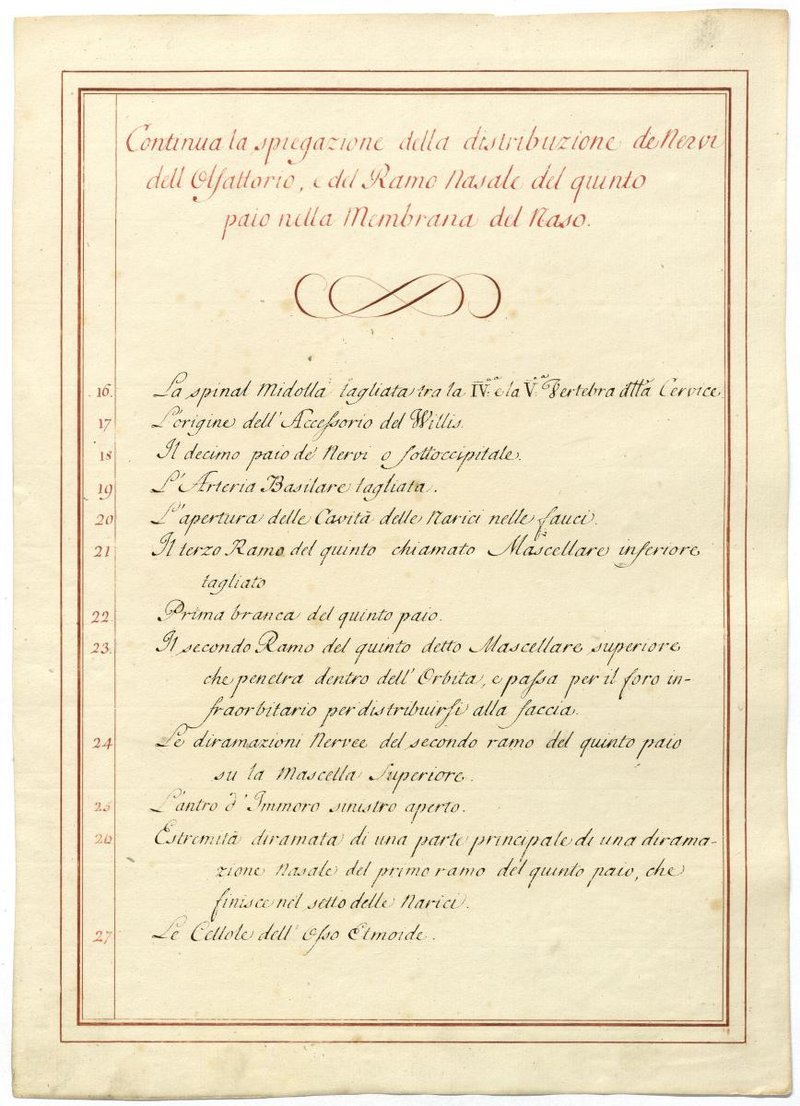 Continua la spiegazione della distribuzione de Nervi
dell Olfattorio, e del Ramo Nasale del quinto
paio nella Membrana del Naso.
16. La spinal Midolla tagliata tra la IV.a e la V.a Vertebra dlla Cervice
17 L'origine dell' Accessorio del Willis.
18 Il decimo paio de Nervi o sottoccipitale.
19 L'Arteria Basilare tagliata.
20 L'apertura delle Cavità delle Narici nelle fauci.
21 Il terzo Ramo del quinto chiamato Mascellare inferiore
tagliato
22. Prima branca del quinto paio.
23. Il secondo Ramo del quinto detto Mascellare superiore
che penetra dentro dell' Orbita, e passa per il foro in-
fraorbitario per distribuirsi alla faccia.
24 Le diramazioni Nervee del secondo ramo del quinto paio
su la Mascella Superiore.
25 L'antro d' Immoro sinistro aperto.
26 Estremità diramata di una parte principale di una dirama-
zione Nasale del primo ramo del quinto paio, che
finisce nel setto delle Narici.
27 Le Cellole dell' Osso Etmoide.